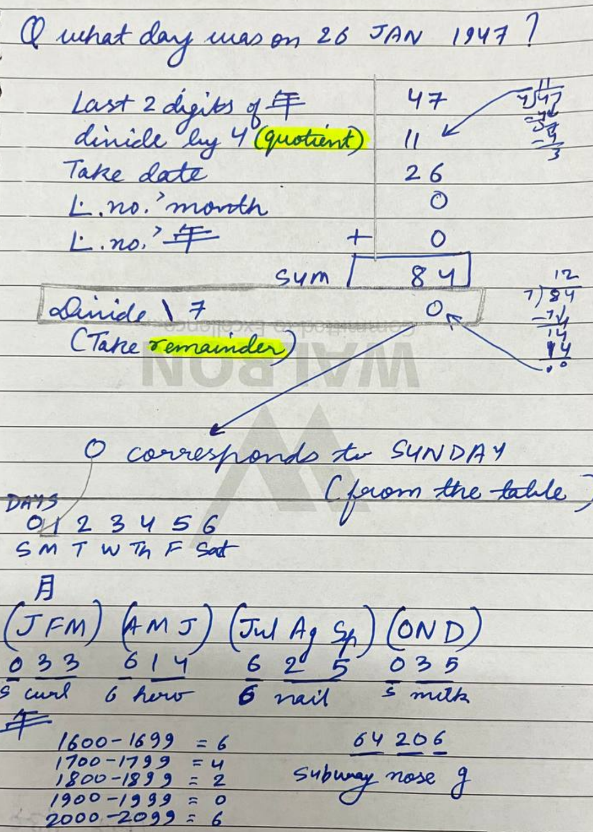 Q what day was on 26 JAN 1947 ?
Last 2 digits of 年 47
divide by 4 (quotient) 11
Take date 26
L. no. > month 0
L. no. > 年 + 0
sum 84
Divide \ 7 0
(Take remainder)
WALRON
0 corresponds to SUNDAY
(from the table)
DAYS
0 1 2 3 4 5 6
S M T W Th F Sat
月
(J F M) (A M J) (Jul Ag Sp) (O N D)
0 3 3 6 1 4 6 2 5 0 3 5
S curl 6 hero 6 nail S milk
年
1600-1699 = 6
1700-1799 = 4
1800-1899 = 2
1900-1999 = 0
2000-2099 = 6
64 206
subway nose g
11
4)47
12
7)84
-7
14
14
0